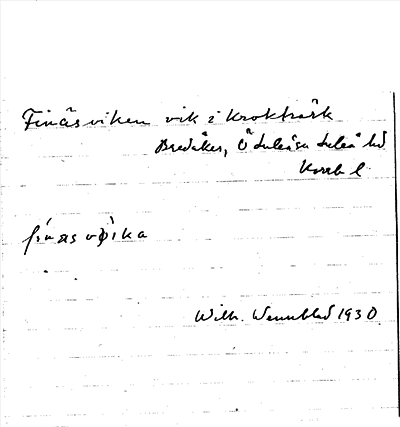 Finäsviken vik i Krokträsk
Bredåker, Ö Luleå sn Luleå hd
Norrb l.
finas vika
Wilh. Wennblad 1930